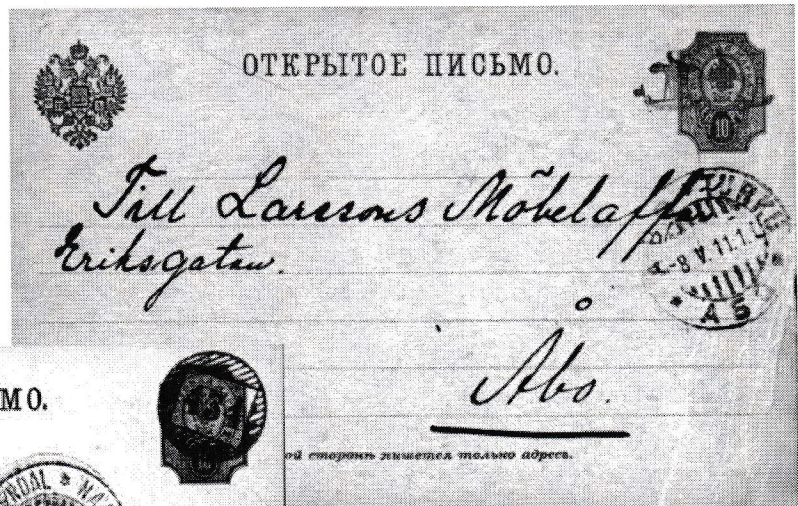 ОТКРЫТОЕ ПИСЬМО.
10
Till Larssons Möbelaffär
Eriksgatan.
Åbo.
TURKU
-8.V.11.1
А Б
МО.
ой сторонѣ пишется только адресъ.